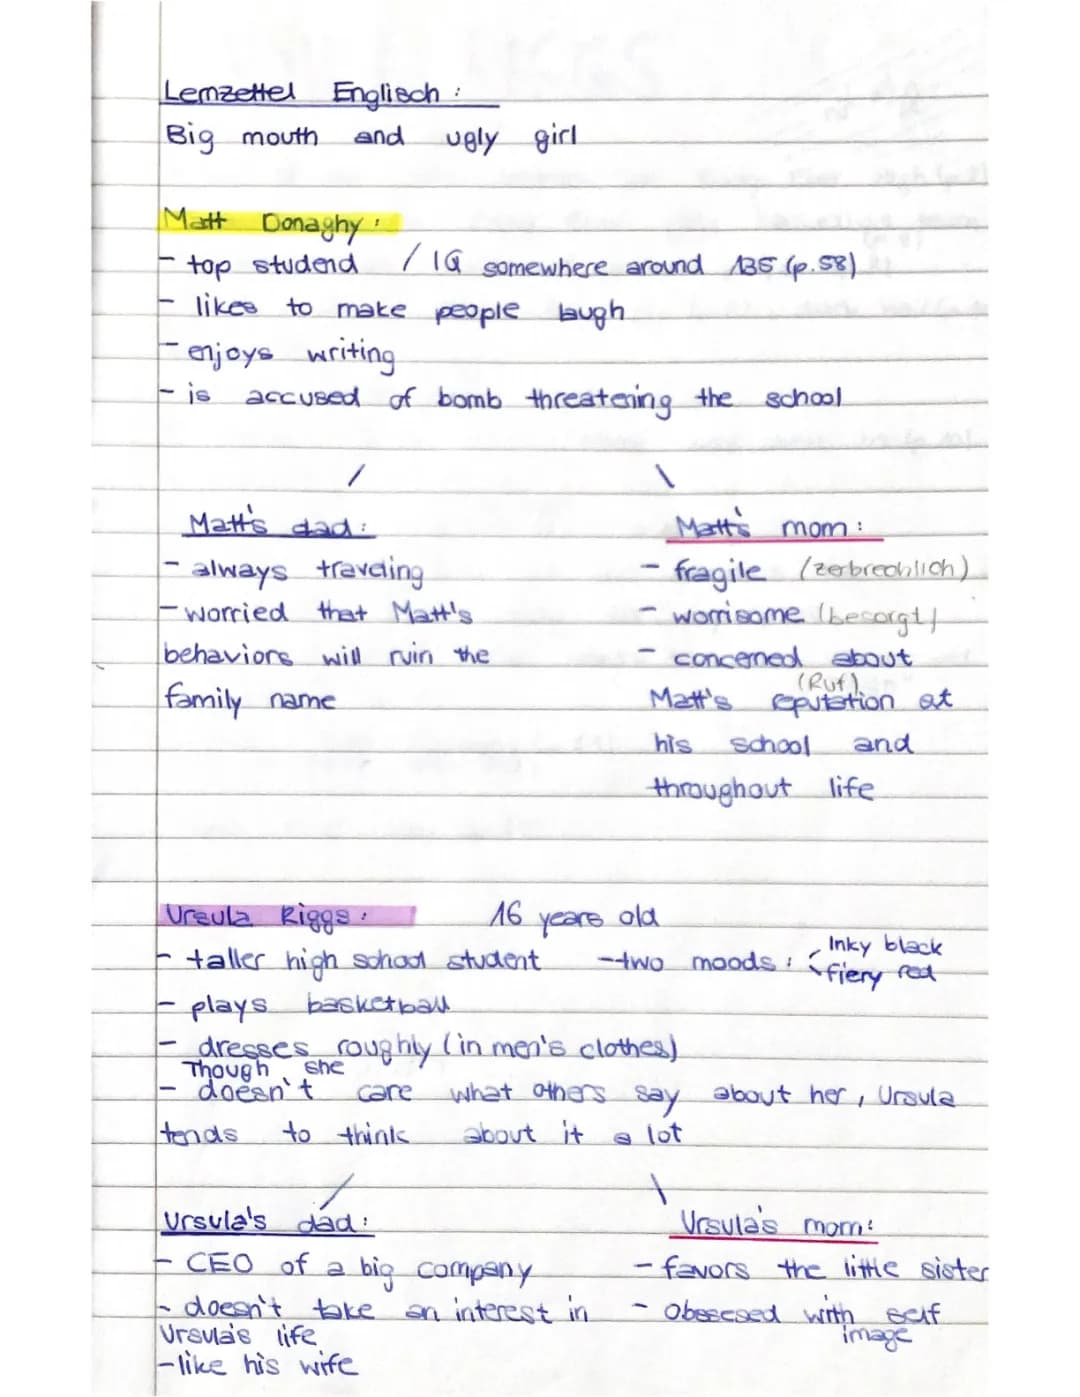 Lernzettel Englisch :
Big mouth and ugly girl
Matt Donaghy :
- top studend / IQ somewhere around 135 (p.58)
- likes to make people laugh
- enjoys writing
- is accused of bomb threatening the school
Matt's dad :
- always traveling
- worried that Matt's
behaviors will ruin the
family name
Matt's mom :
- fragile (zerbrechlich)
- worrisome (besorgt)
- concerned about
(Ruf)
Matt's reputation at
his school and
throughout life
Ursula Riggs : 16 years old
- taller high school student - two moods : Inky black
fiery red
- plays basketball
- dresses roughly (in men's clothes)
Though she
- doesn't care what others say about her, Ursula
tends to think about it a lot
Ursula's dad :
- CEO of a big company
- doesn't take an interest in
Ursula's life
- like his wife
Ursula's mom :
- favors the little sister
- obsessed with self
image